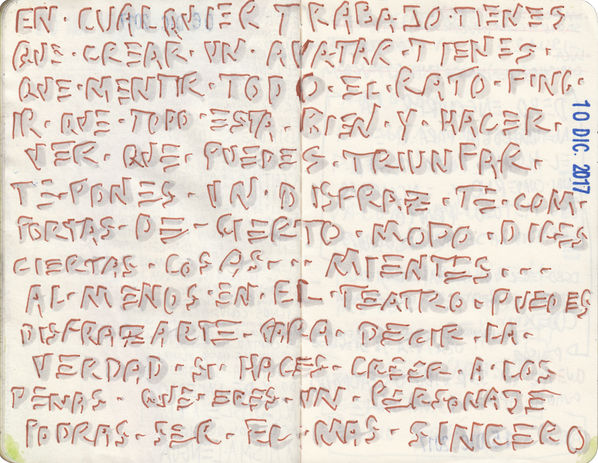 EN CUALQUIER TRABAJO·TIENES
QUE·CREAR·UN AVATAR·TIENES·
QUE·MENTIR·TODO·EL·RATO·FING·
IR·QUE·TODO·ESTA·BIEN·Y·HACER·
VER·QUE·PUEDES·TRIUNFAR·
TE·PONES·UN·DISFRAZ·TE·COM·
PORTAS·DE·CIERTO·MODO·DICES
CIERTAS·COSAS··· MIENTES···
AL·MENOS·EN·EL·TEATRO·PUEDES
DISFRAZARTE·PARA·DECIR·LA·
VERDAD·SI·HACES·CREER·A·LOS
DEMAS·QUE·ERES·UN·PERSONAJE
PODRAS·SER·EL·MAS·SINCERO
10 DIC 2017